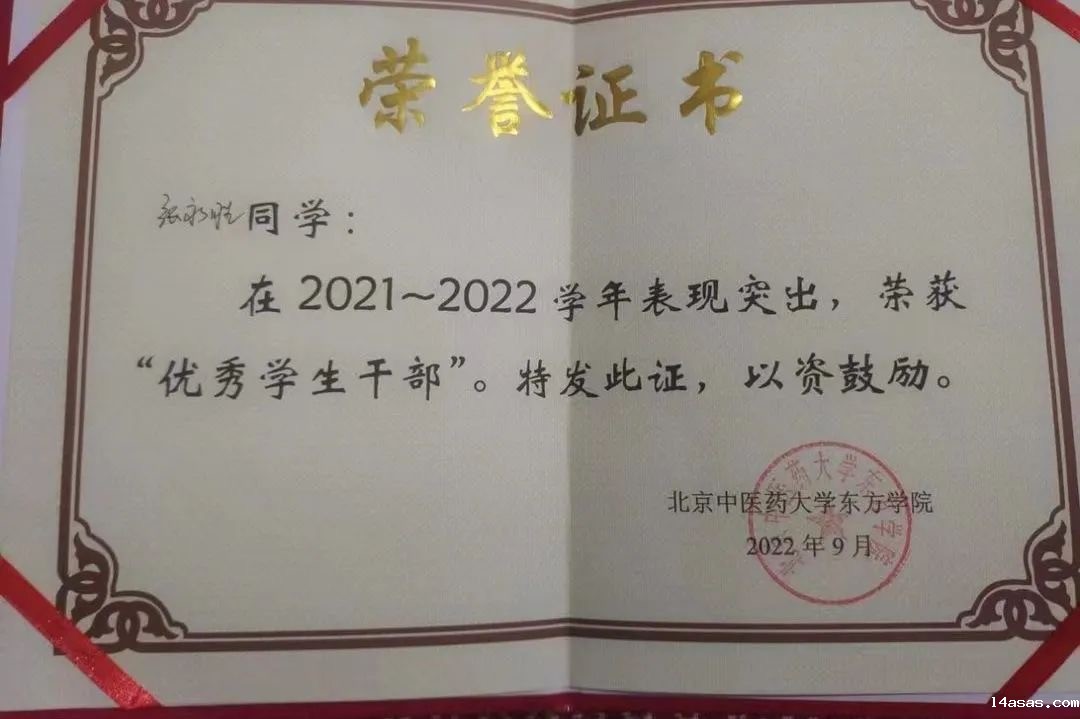 荣誉证书
张永胜同学:
在2021~2022学年表现突出,荣获
“优秀学生干部”。特发此证,以资鼓励。
北京中医药大学东方学院
2022年9月
14asas.com